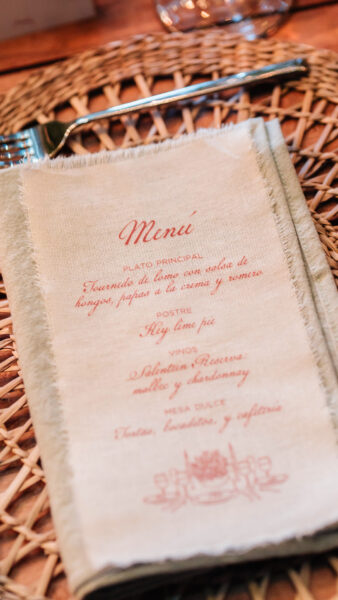 Menú
PLATO PRINCIPAL
Tournedo de lomo con salsa de
hongos, papas a la crema y romero
POSTRE
Key lime pie
VINOS
Salentein Reserva:
malbec y chardonnay
MESA DULCE
Tortas, bocaditos, y cafetería